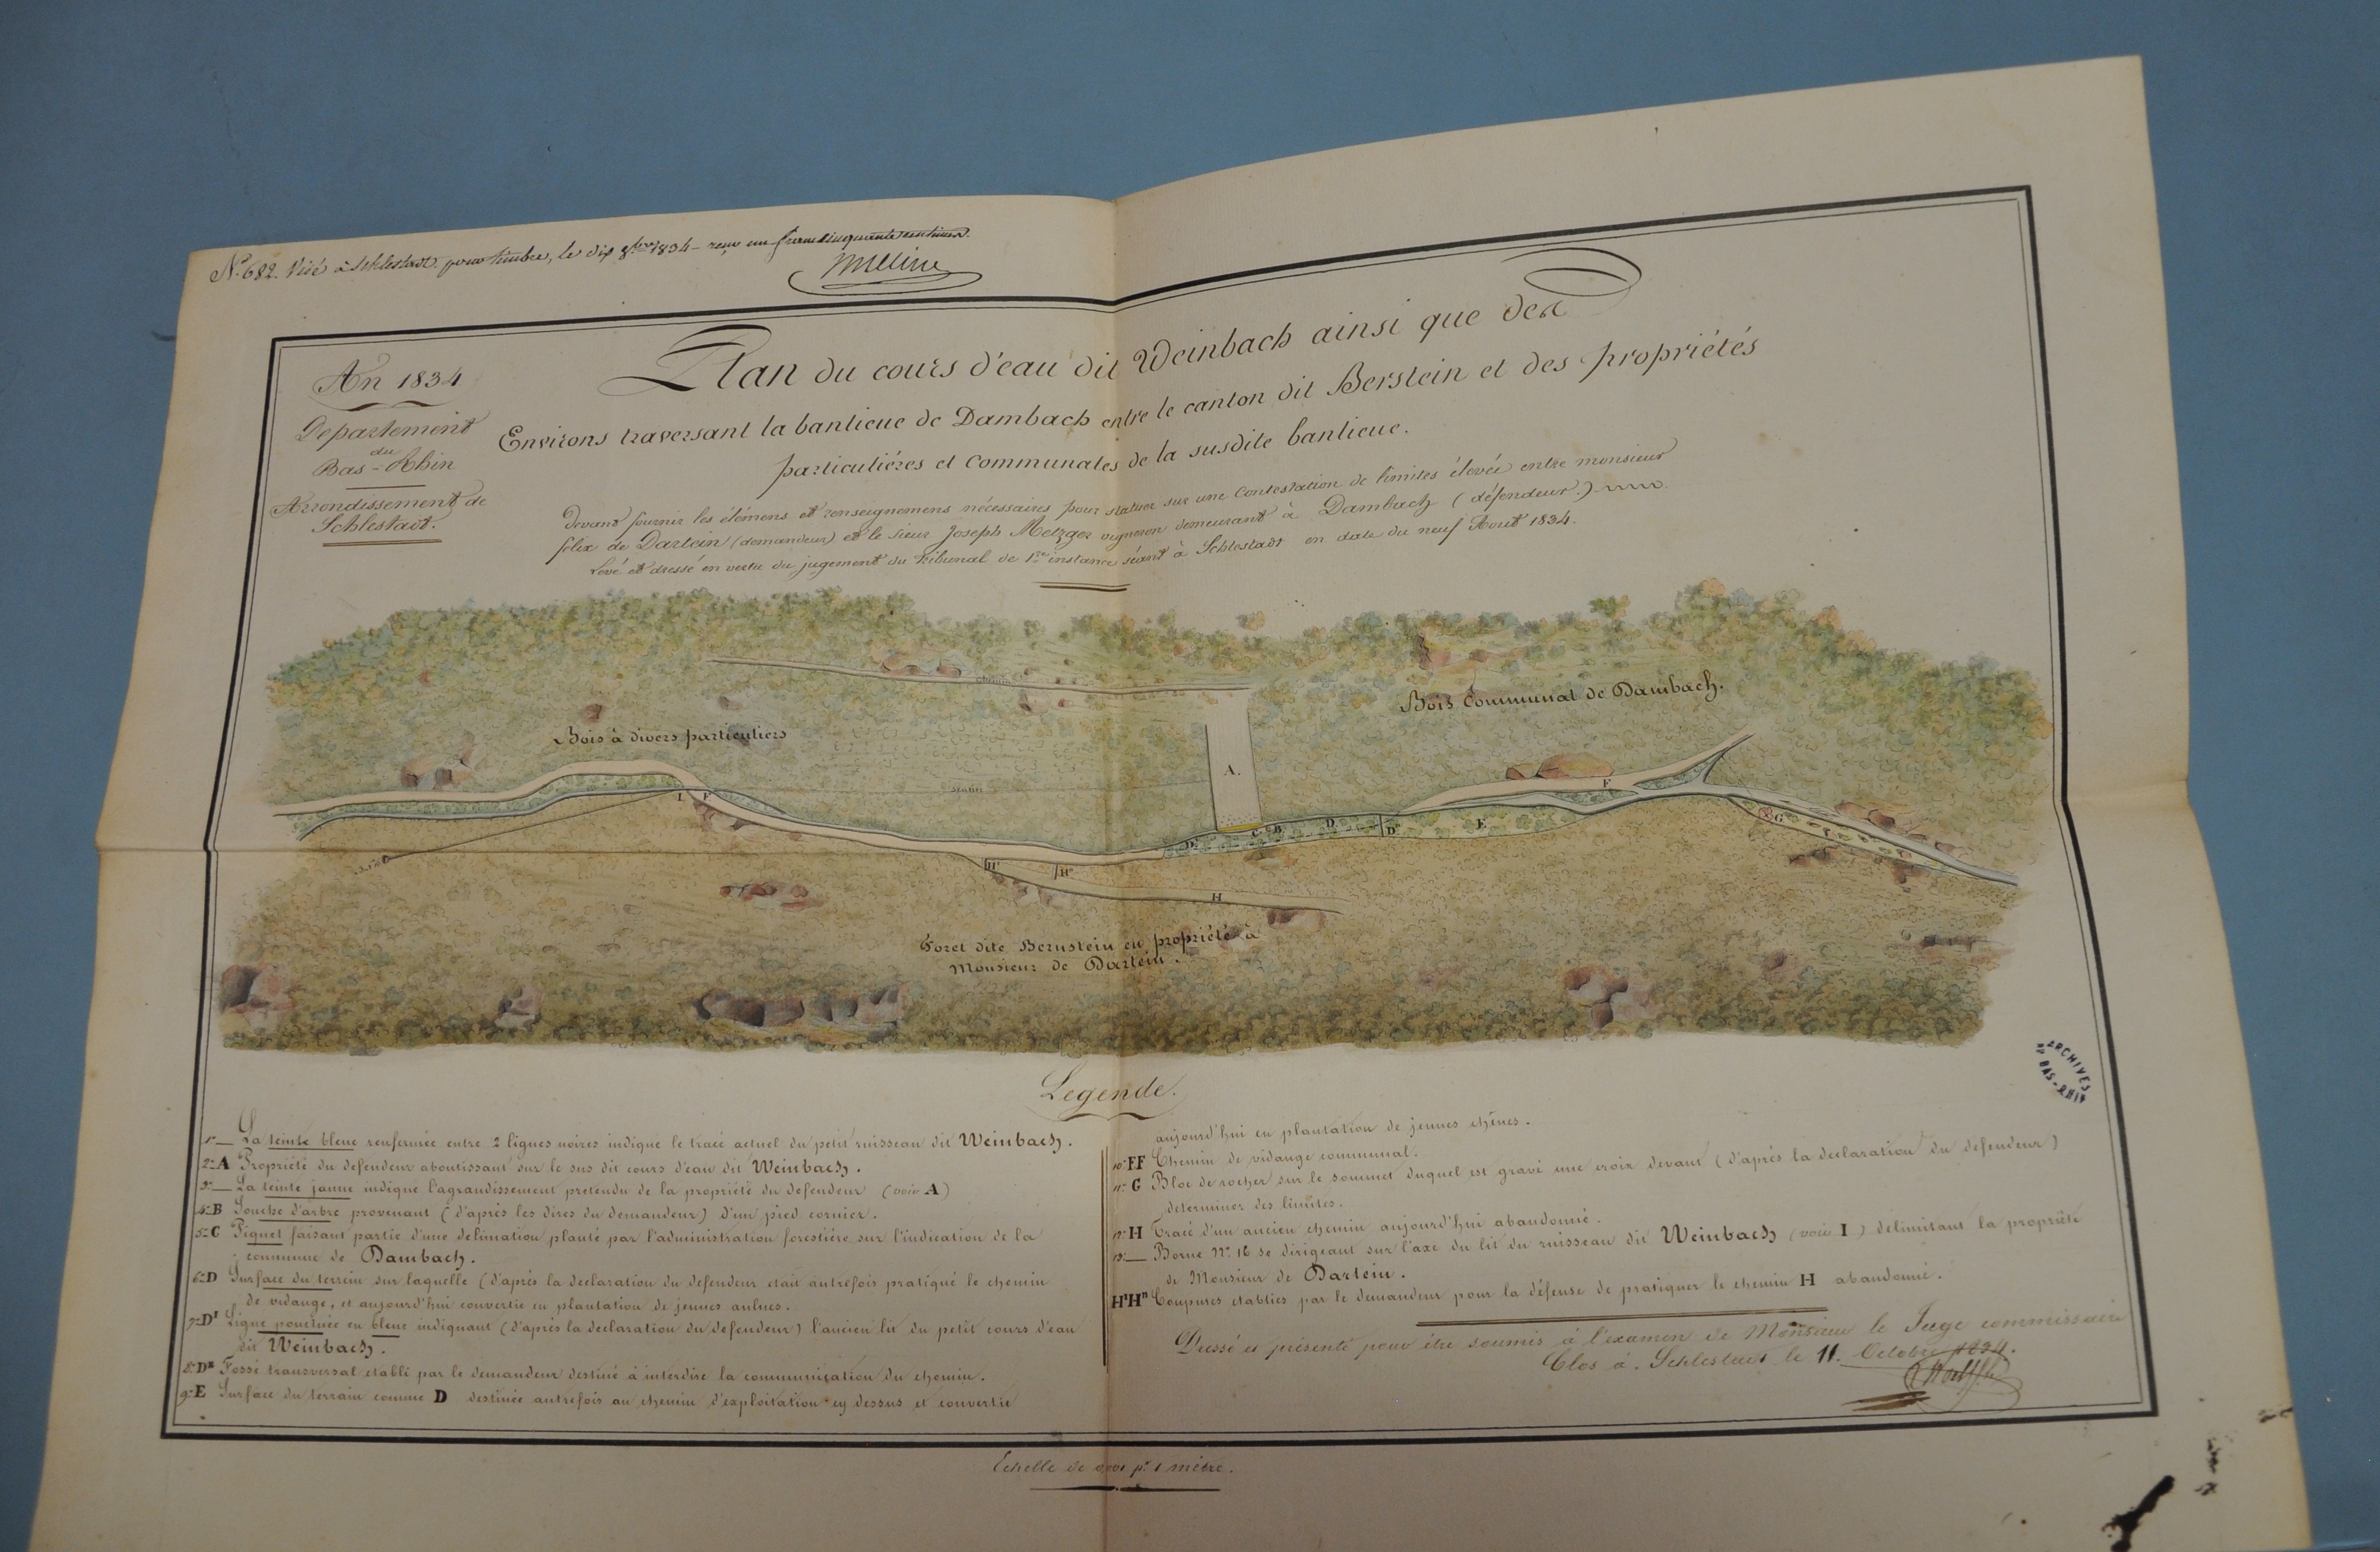 N.° 682. Visé à Schlestadt pour timbre, le dix 8bre 1834 - reçu un franc cinquante centimes.
An 1834
Departement
du
Bas-Rhin
Arrondissement de
Schlestadt.
Plan du cours d'eau dit Weinbach ainsi que des
Environs traversant la banlieue de Dambach entre le canton dit Berstein et des propriétés
particulières et Communales de la susdite banlieue.
Devant fournir les élémens et renseignemens nécessaires pour statuer sur une Contestation de limites élevée entre monsieur
félix de Dartein (demandeur) et le sieur Joseph Metzger vigneron demeurant à Dambach (défendeur.)
Levé et dressé en vertu du jugement du tribunal de 1re instance séant à Schlestadt en date du neuf Aout 1834.
chemin
Bois Communal de Dambach.
Bois à divers particuliers
A.
sentier
F
I F
C B D
D'
D"
E
G
H'
H"
H
Foret dite Bernstein en propriété à
Monsieur de Dartein.
ARCHIVES
BAS-RHIN
Legende.
1°- La teinte bleue renfermée entre 2 lignes noires indique le tracé actuel du petit ruisseau dit Weinbach.
2°-A Propriété du defendeur aboutissant sur le sus dit cours d'eau dit Weinbach.
3°- La teinte jaune indique l'agrandissement pretendu de la propriété du defendeur (voir A)
4°-B Souche d'arbre provenant (d'après les dires du demandeur) d'un pied cornier.
5°-C Piquet faisant partie d'une delimation planté par l'administration forestière sur l'indication de la
commune de Dambach.
6°-D Surface du terrein sur laquelle (d'après la declaration du defendeur etait autrefois pratiqué le chemin
de vidange, et aujourd'hui convertie en plantation de jeunes aulnes.
7°-D' Ligne ponctuée en bleue indiquant (d'après la declaration du defendeur) l'ancien lit du petit cours d'eau
dit Weinbach.
8°-D" Fossé transversal etabli par le demandeur destiné à interdire la communication du chemin.
9°-E Surface du terrain comme D destinée autrefois au chemin d'exploitation cy dessus et convertie
aujourd'hui en plantation de jeunes chênes.
10°-FF Chemin de vidange communal.
11°-G Bloc de rocher sur le sommet duquel est gravé une croix devant (d'après la declaration du defendeur)
determiner des limites.
12°-H Tracé d'un ancien chemin aujourd'hui abandonné.
13°- Borne N° 16 se dirigeant sur l'axe du lit du ruisseau dit Weinbach (voir I) délimitant la propriété
de Monsieur de Dartein.
H'H" Coupures etablies par le demandeur pour la défense de pratiquer le chemin H abandonné.
Dressé et présenté pour être soumis à l'examen de Monsieur le Juge commissaire
Clos à Schlestadt le 11. Octobre 1834.
Echelle de 0,001 pr. 1 mètre.